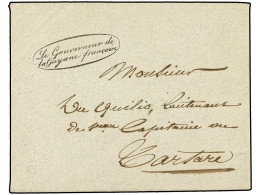 Le Gouverneur de
la Guyane françoise
Monsieur
Du Quilio, Lieutenant
de Capitaine
Tartare